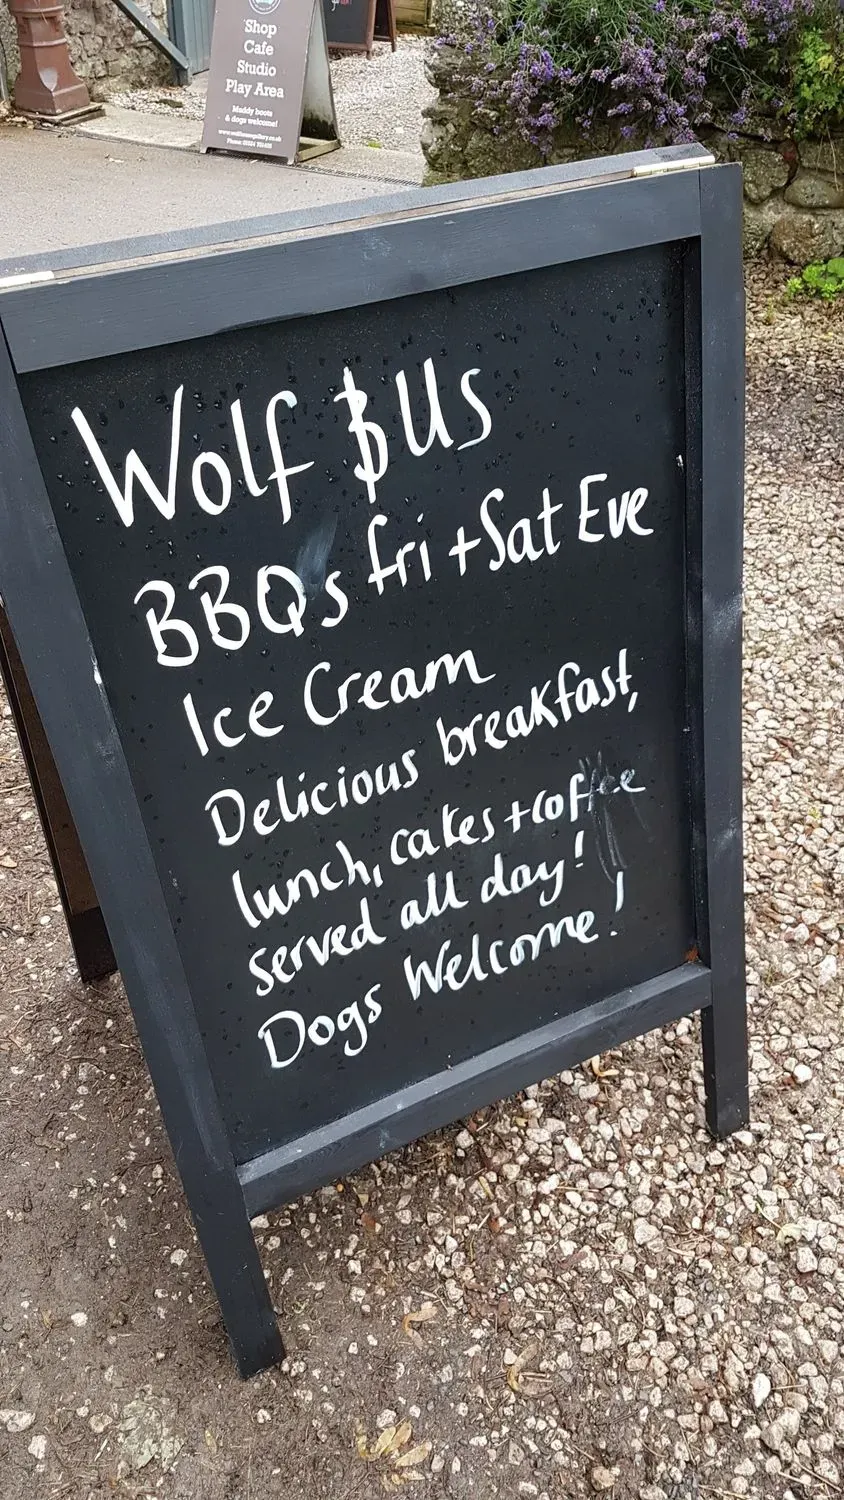 Shop
Cafe
Studio
Play Area
Muddy boots
& dogs welcome!
Wolf & Us
BBQs fri + Sat Eve
Ice Cream
Delicious breakfast,
lunch, cakes + coffee
served all day!
Dogs Welcome!